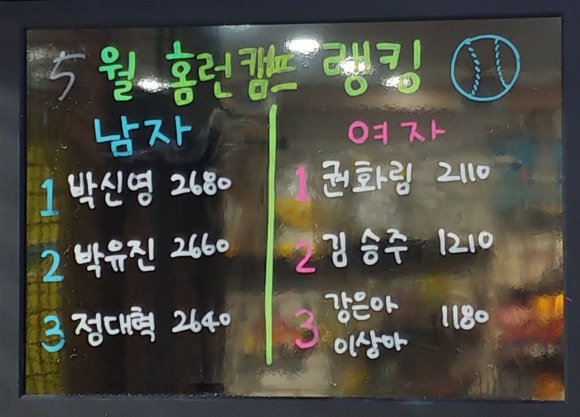 5월 홈런캠프 랭킹
남자
1 박신영 2680
2 박유진 2660
3 정대혁 2640
여자
1 권화림 2110
2 김승주 1210
3 강은아 1180
이상아